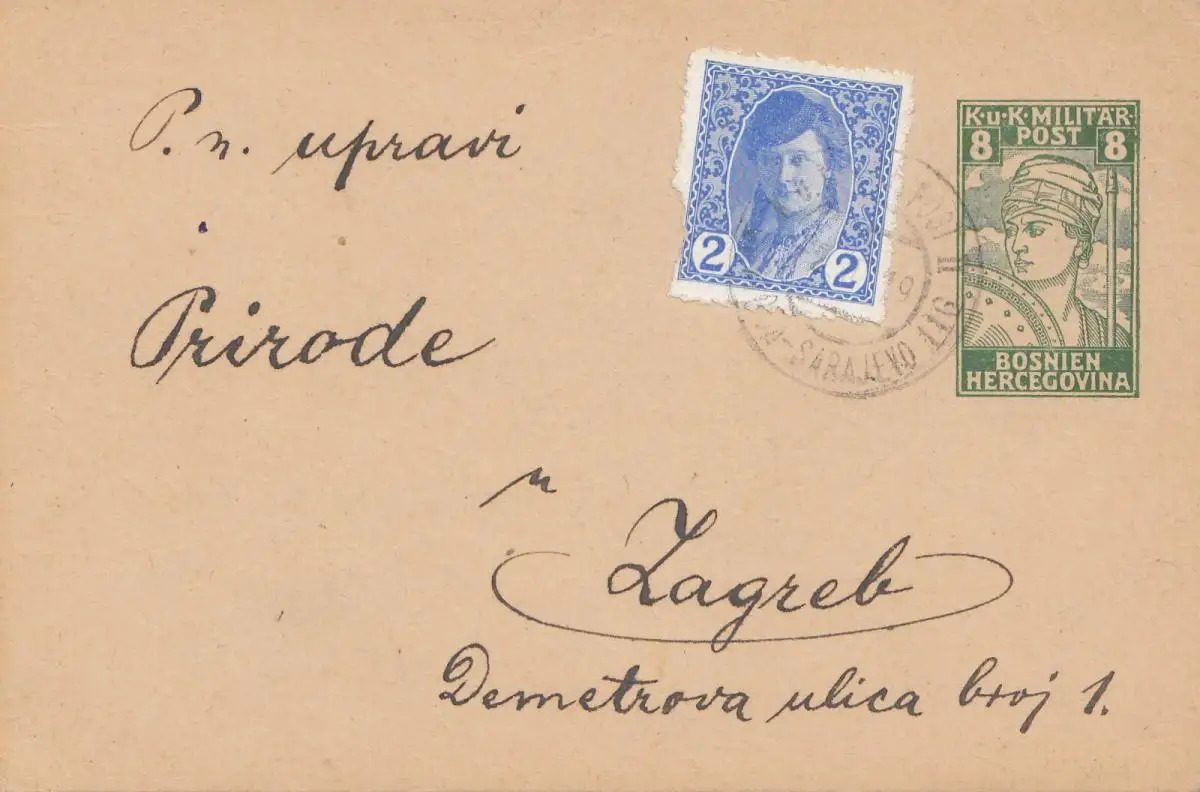 P. n. upravi
Prirode
u
Zagreb
Demetrova ulica broj 1.
2 2
K·u·K·MILITÄR·
8 POST 8
BOSNIEN
HERCEGOVINA
SARAJEVO